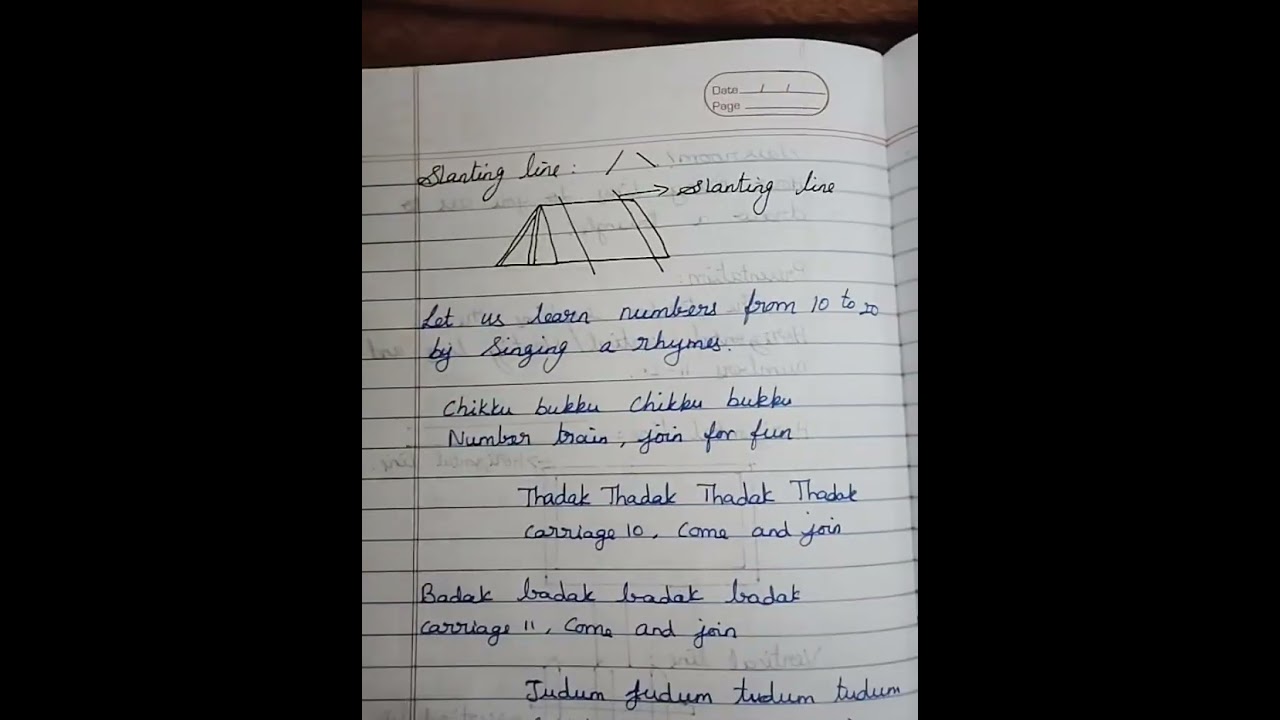 Date / /
Page
Slanting line : / \
Slanting line
Let us learn numbers from 10 to 20
by singing a rhymes.
Chikku bukku chikku bukku
Number train, join for fun
Thadak Thadak Thadak Thadak
carriage 10, come and join
Badak badak badak badak
carriage 11, come and join
Judum judum tudum tudum